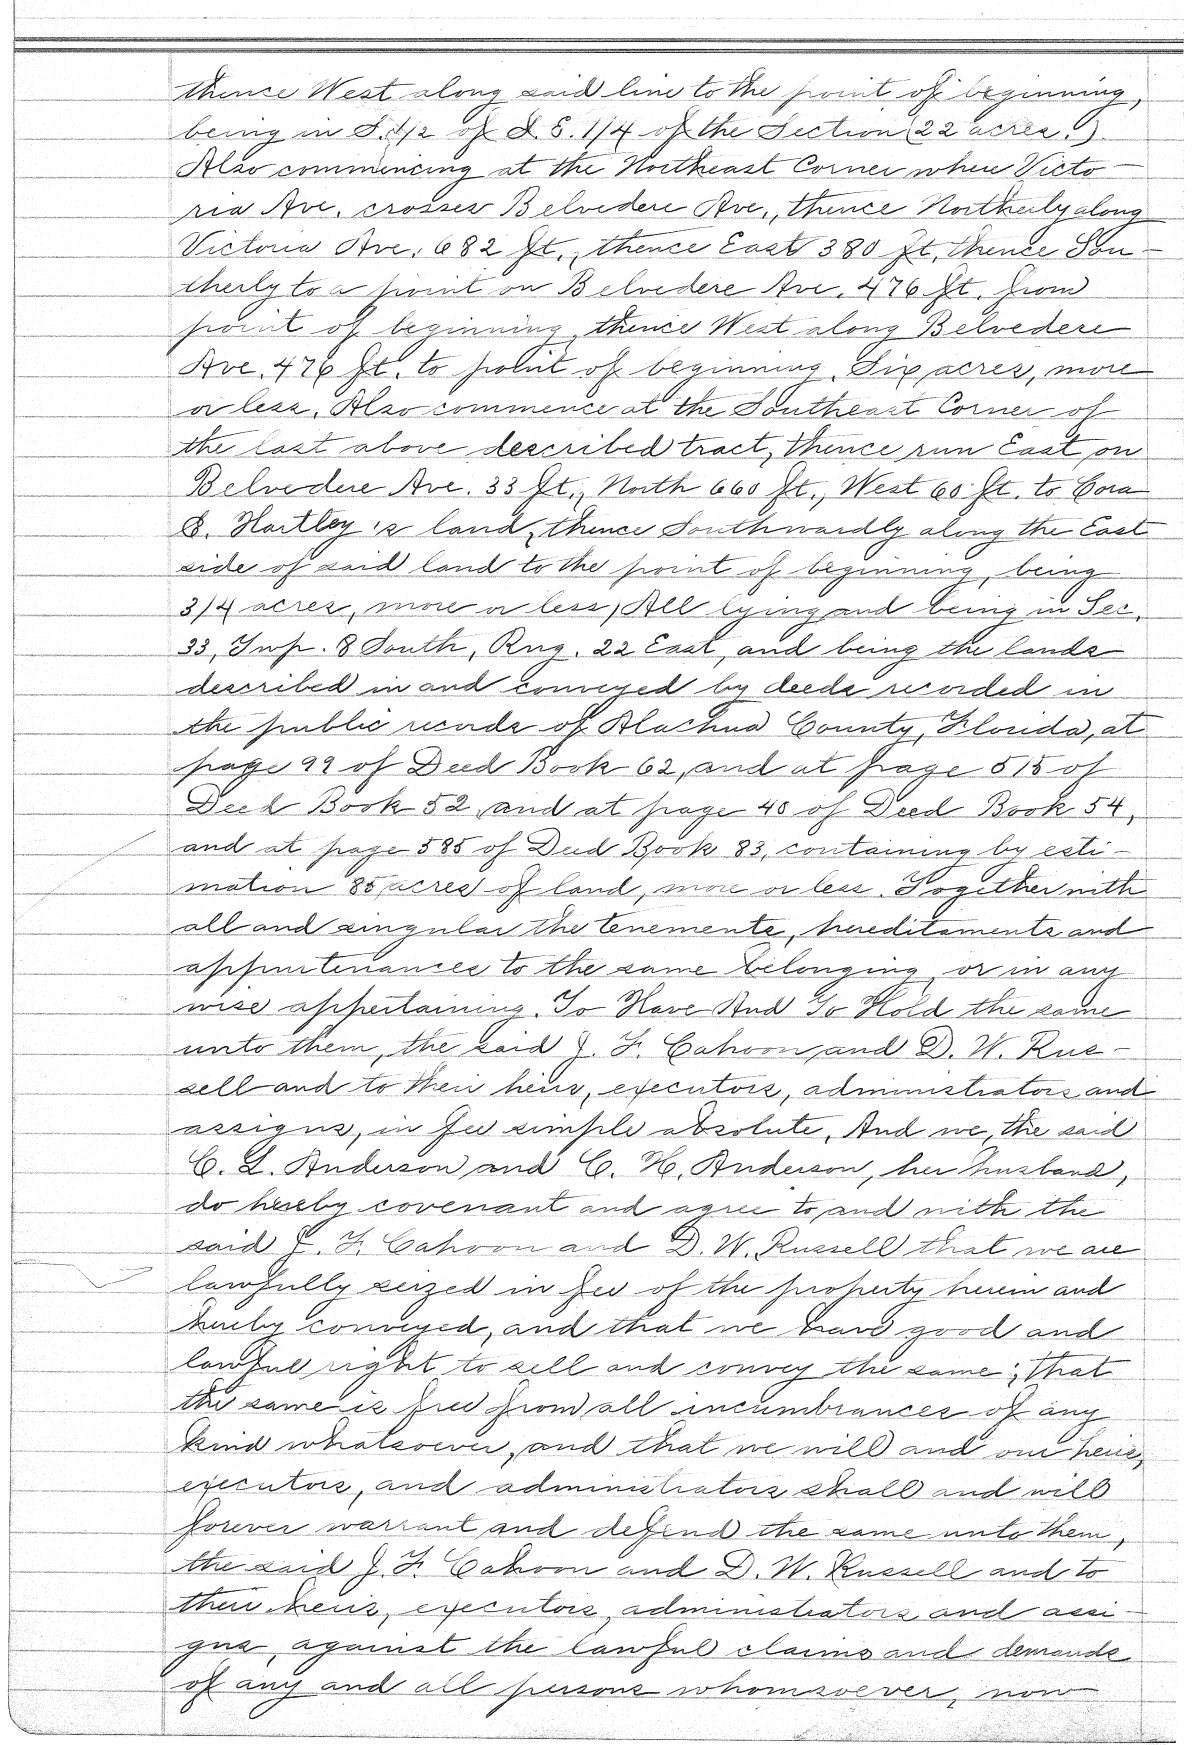 thence West along said line to the point of beginning,
being in S. 1/2 of S. E. 1/4 of the Section (22 acres.)
Also commencing at the Northeast Corner where Victo-
ria Ave. crosses Belvedere Ave., thence Northerly along
Victoria Ave. 682 ft., thence East 380 ft, thence Sou-
therly to a point on Belvedere Ave. 476 ft. from
point of beginning, thence West along Belvedere
Ave. 476 ft. to point of beginning. Six acres, more
or less. Also commence at the Southeast Corner of
the last above described tract, thence run East on
Belvedere Ave. 33 ft., North 660 ft., West 60 ft. to Cora
S. Hartley's land, thence Southwardly along the East
side of said land to the point of beginning, being
3/4 acres, more or less, All lying and being in Sec.
33, Twp. 8 South, Rng. 22 East, and being the lands
described in and conveyed by deeds recorded in
the public records of Alachua County, Florida, at
page 99 of Deed Book 62, and at page 515 of
Deed Book 52, and at page 40 of Deed Book 54,
and at page 585 of Deed Book 83, containing by esti-
mation 85 acres of land, more or less. Together with
all and singular the tenements, hereditaments and
appurtenances to the same belonging, or in any
wise appertaining. To Have And To Hold the same
unto them, the said J. F. Cahoon and D. W. Rus-
sell and to their heirs, executors, administrators and
assigns, in fee simple absolute. And we, the said
C. L. Anderson and C. H. Anderson, her husband,
do hereby covenant and agree to and with the
said J. F. Cahoon and D. W. Russell that we are
lawfully seized in fee of the property herein and
hereby conveyed, and that we have good and
lawful right to sell and convey the same; that
the same is free from all incumbrances of any
kind whatsoever, and that we will and our heirs,
executors, and administrators shall and will
forever warrant and defend the same unto them,
the said J. F. Cahoon and D. W. Russell and to
their heirs, executors, administrators and assi-
gns, against the lawful claims and demands
of any and all persons whomsoever, now